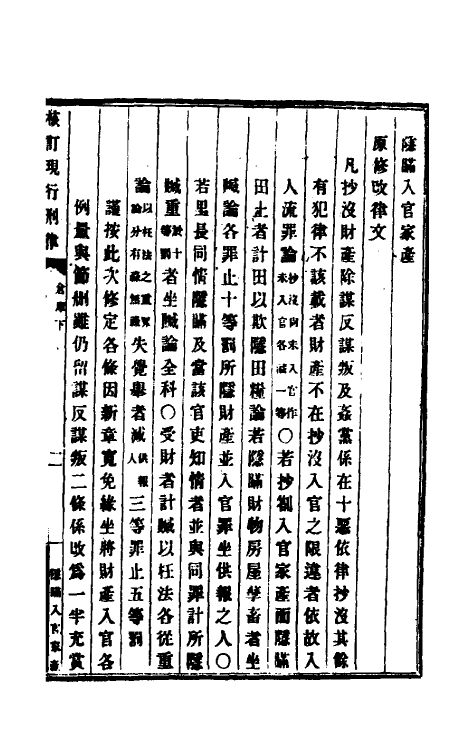 隱瞞入官家產
原修改律文
凡抄沒財產除謀反謀叛及姦黨係在十惡依律抄沒其餘
有犯律不該載者財產不在抄沒入官之限違者依故入
人流罪論抄沒尚未入官作未入官各減一等○若抄劄入官家產而隱瞞
田土者計田以欺隱田糧論若隱瞞財物房屋孳畜者坐
贓論各罪止十等罰所隱財產並入官罪坐供報之人○
若里長同情隱瞞及當該官吏知情者並與同罪計所隱
贓重於十等罰者坐贓論全科○受財者計贓以枉法各從重
論以枉法之重罪論分有祿無祿失覺舉者減供報人三等罪止五等罰
謹按此次修定各條因新章寬免緣坐將財產入官各
例量與節刪雖仍留謀反謀叛二條係改為一半充賞
核訂現行刑律
倉庫下
二
隱瞞入官家產